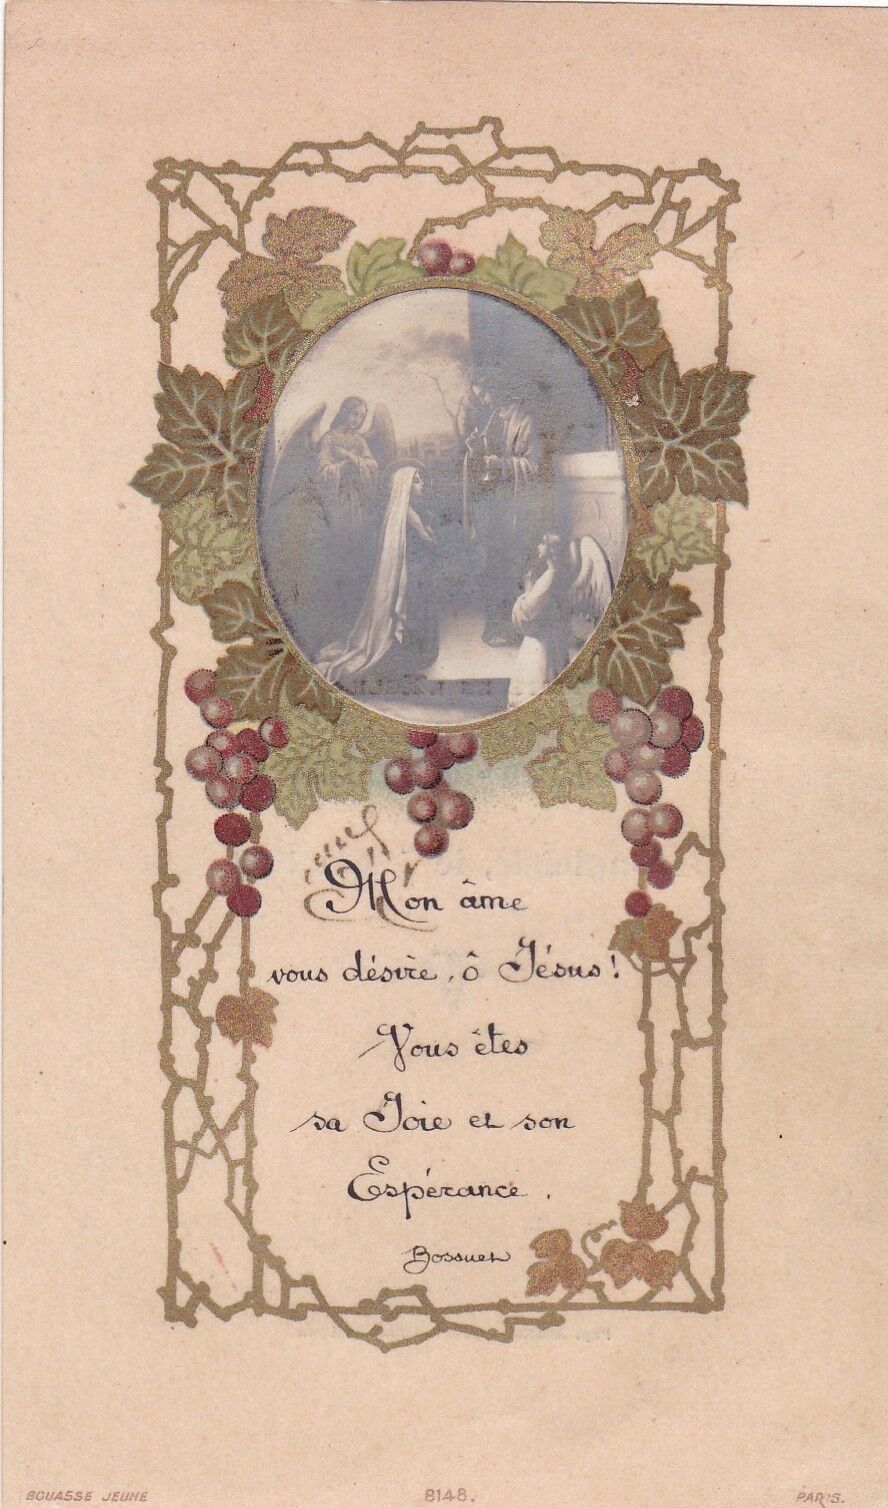 Mon âme
vous désire, ô Jésus!
Vous êtes
sa Joie et son
Espérance.
Bossuet
BOUASSE JEUNE 8148. PARIS.